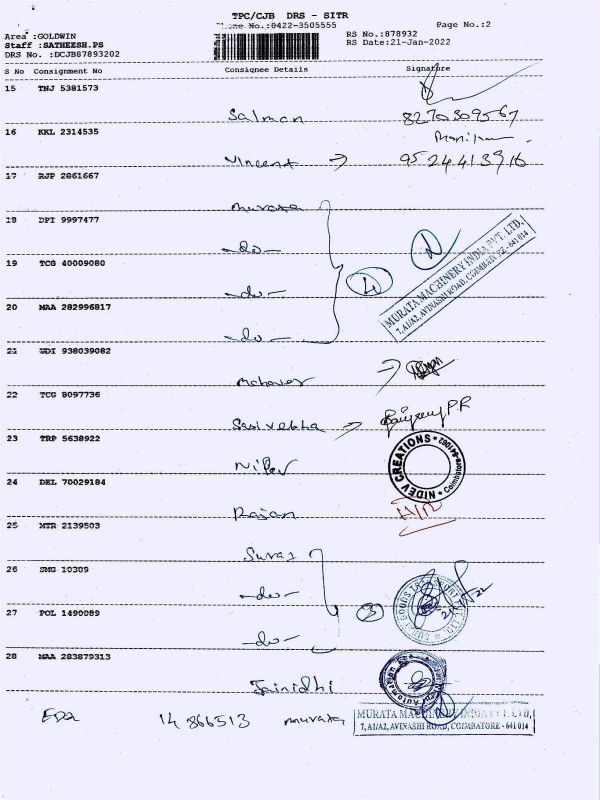 TPC/CJB DRS - SITR
Phone No.:0422-3505555 Page No.:2
Area :GOLDWIN RS No.:878932
Staff :SATHEESH.PS RS Date:21-Jan-2022
DRS No. :DCJB87893202
S No Consignment No Consignee Details Signature
15 TNJ 5381573
Salman 8270309567
16 KKL 2314535
Vincent → 9524413916
17 RJP 2861667
murata
18 DPI 9997477
-do-
19 TCG 40009080
-do- 4
MURATA MACHINERY INDIA PVT. LTD.
7, A1/A2, AVINASHI ROAD, COIMBATORE - 641 014
20 MAA 282996817
-do-
21 GDI 938039082
mahaver →
22 TCG 8097736
Sasivebha → PR
23 TRP 5638922
Nidev
NIDEV CREATIONS
Coimbatore-641062
24 DEL 70029184
Rajan
25 MTR 2139503
Suraj
26 SMG 10309
-do-
27 POL 1490089 3
-do-
28 MAA 283879313
Jainidhi
EDA 14866513 murata
MURATA MACHINERY INDIA PVT. LTD.
7, A1/A2, AVINASHI ROAD, COIMBATORE - 641 014